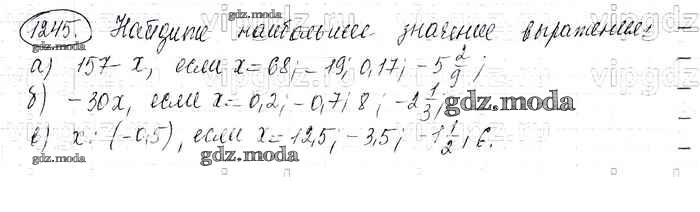 1245. Найдите наибольшее значение выражения:
gdz.moda
а) 157 - x, если x = 68; -19; 0,17; -5 2/9;
б) -30x, если x = 0,2; -0,7; 8; -2 1/3; gdz.moda
в) x : (-0,5), если x = 12,5; -3,5; -1 1/2; 6.
gdz.moda gdz.moda